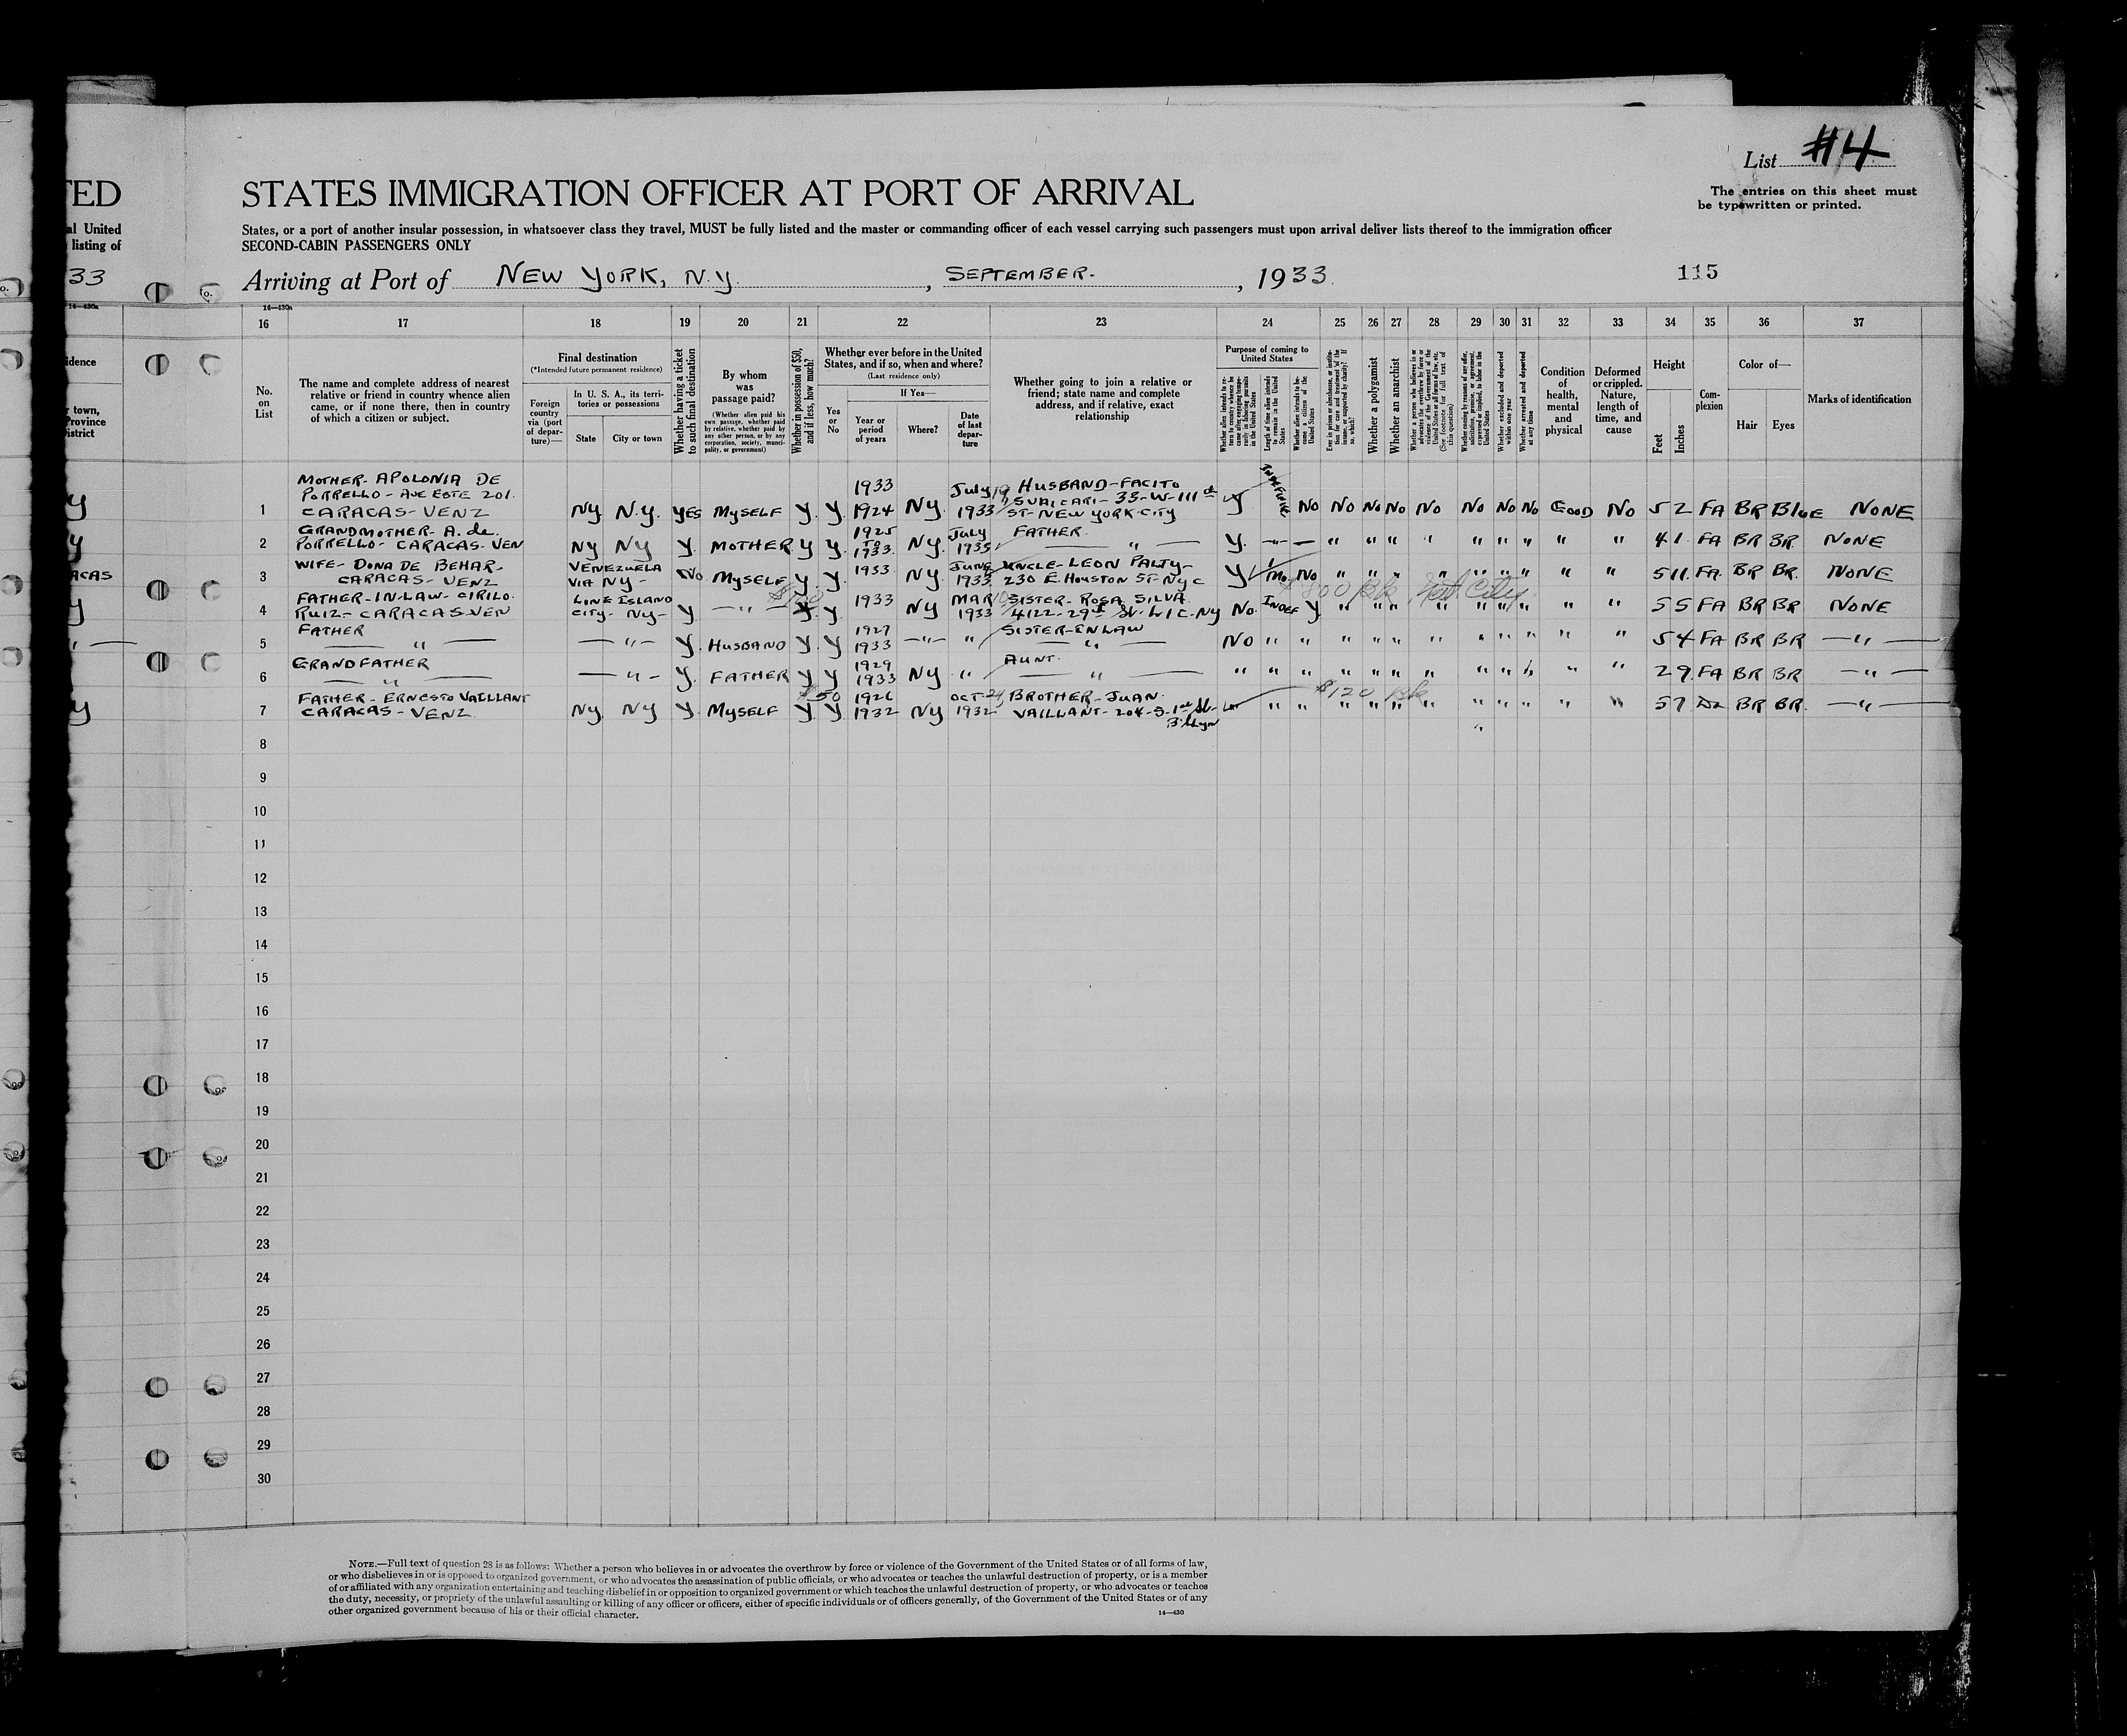 List #4
The entries on this sheet must
be typewritten or printed.
TED
STATES IMMIGRATION OFFICER AT PORT OF ARRIVAL
al United
listing of
States, or a port of another insular possession, in whatsoever class they travel, MUST be fully listed and the master or commanding officer of each vessel carrying such passengers must upon arrival deliver lists thereof to the immigration officer
SECOND-CABIN PASSENGERS ONLY
33
Arriving at Port of NEW YORK, N.Y. , SEPTEMBER- , 1933.
115
14—430a
14—430a
16 17 18 19 20 21 22 23 24 25 26 27 28 29 30 31 32 33 34 35 36 37
idence
r town,
Province
District
No.
on
List
The name and complete address of nearest
relative or friend in country whence alien
came, or if none there, then in country
of which a citizen or subject.
Final destination
(*Intended future permanent residence)
Foreign
country
via (port
of depar-
ture)—
In U. S. A., its terri-
tories or possessions
State
City or town
Whether having a ticket
to such final destination
By whom
was
passage paid?
(Whether alien paid his
own passage, whether paid
by relative, whether paid by
any other person, or by any
corporation, society, munici-
pality, or government)
Whether in possession of $50,
and if less, how much?
Whether ever before in the United
States, and if so, when and where?
(Last residence only)
Yes
or
No
If Yes—
Year or
period
of years
Where?
Date
of last
depar-
ture
Whether going to join a relative or
friend; state name and complete
address, and if relative, exact
relationship
Purpose of coming to
United States
Length of time alien intends
to remain in the United
States
Whether alien intends to be-
come a citizen of the
United States
Whether a polygamist
Whether an anarchist
Whether excluded and deported
within one year
Whether arrested and deported
at any time
Condition
of
health,
mental
and
physical
Deformed
or crippled.
Nature,
length of
time, and
cause
Height
Feet
Inches
Com-
plexion
Color of—
Hair
Eyes
Marks of identification
MOTHER- APOLONIA DE
PORRELLO- AVE ESTE 201.
1 CARACAS- VENZ NY N.Y. YES MYSELF Y. Y. 1933 1924 NY. July 19 1933
HUSBAND- FACITO
33-W-111
ST- NEW YORK-CITY
Y INDEFINITE NO NO NO NO NO NO NO NO GOOD NO 5 2 FA BR BLUE NONE
GRANDMOTHER- A. de.
2 PORRELLO- CARACAS- VEN NY NY Y. MOTHER Y Y. 1925 TO 1933. NY. July 1933 FATHER. — " — Y. — — " " " " " " " " " 4 1. FA BR BR. NONE
WIFE- DONA DE BEHAR-
3 CARACAS- VENZ VENEZUELA VIA NY- NO MYSELF Y Y. 1933. NY. JUNE 1933.
UNCLE- LEON PALTY-
230 E. HOUSTON ST- NYC
Y 1 MO. NO " " " " " " " " " 5 11. FA. BR BR. NONE
FATHER-IN-LAW- CIRILO.
4 RUIZ- CARACAS-VEN LINE ISLAND CITY- NY- Y — " — Y. Y. 1933 NY MAR 10 1933
SISTER- ROSA SILVA
4122-29th St- L I C- NY
NO. INDEF Y " " " " " " " " " 5 5 FA BR BR NONE
$800 Bk
5 FATHER — " — — " — Y. HUSBAND Y. Y 1927 1933 — " — " SISTER-IN LAW — " — NO " " " " " " " " " " " 5 4 FA BR BR — " —
6 GRANDFATHER — " — — " — Y. FATHER Y Y 1929 1933 NY " AUNT. — " — " " " " " " " " " " " " 2 9. FA BR BR — " —
$50 $120 Bk
FATHER- ERNESTO VAILLANT
7 CARACAS- VENZ. NY. NY Y MYSELF Y. Y 1926 1932 NY OCT-24 1932
BROTHER- JUAN.
VAILLANT- 204-S-1st St-
B'klyn
" " " " " " " " " " " 5 7 BR BR. — " —
8
9
10
11
12
13
14
15
16
17
18
19
20
21
22
23
24
25
26
27
28
29
30
NOTE.—Full text of question 28 is as follows: Whether a person who believes in or advocates the overthrow by force or violence of the Government of the United States or of all forms of law,
or who disbelieves in or is opposed to organized government, or who advocates the assassination of public officials, or who advocates or teaches the unlawful destruction of property, or is a member
of or affiliated with any organization entertaining and teaching disbelief in or opposition to organized government or which teaches the unlawful destruction of property, or who advocates or teaches
the duty, necessity, or propriety of the unlawful assaulting or killing of any officer or officers, either of specific individuals or of officers generally, of the Government of the United States or of any
other organized government because of his or their official character.
14—430